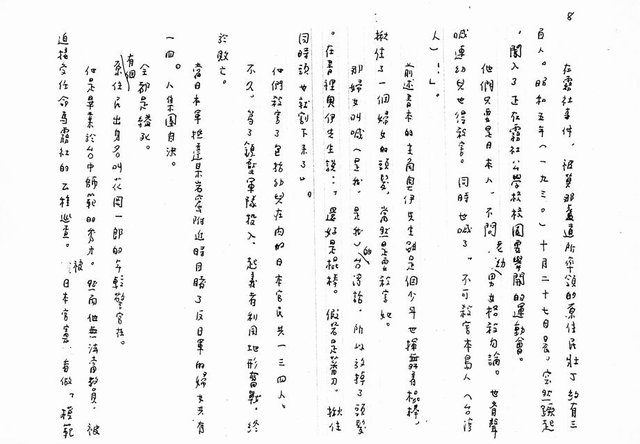 8
在霧社事件，被莫那魯道所率領的原住民壯丁約有三
百人。昭和五年（一九三〇）十月二十七日晨，突然強起
闖入了正在霧社公學校校園要舉開的運動會。
他們只要是日本人，不問老幼男女格殺勿論。也有聲
喊連幼兒也得殺害。同時也喊了"不可殺害本島人（台灣
人）！"。
前述書本的主角奧伊先生雖是個少年也揮舞著棍棒，
揪住了一個婦女的頭髮，當然是要殺害她。
那婦女叫喊（是我，是我）的台灣話，所以放掉了頭髮
。在書裡奧伊先生說："還好是棍棒。假若是蕃刀，揪住
同時頭也就割下來了"。
他們殺害了包括幼兒在內的日本官民共一三四人。
不久，為了鎮壓軍隊投入，起義者利用地形奮戰，終
於敗亡。
當日本軍抵達某岩窟附近時目睹了反日軍的婦女共有
一四〇人集團自決。
全部是縊死。
有個原住民出身名叫花岡一郎的年輕警官在。
他是畢業於台中師範的秀才。然而他無法當教員，被
迫接受任命為霧社的乙種巡查。被日本官憲看做"模範